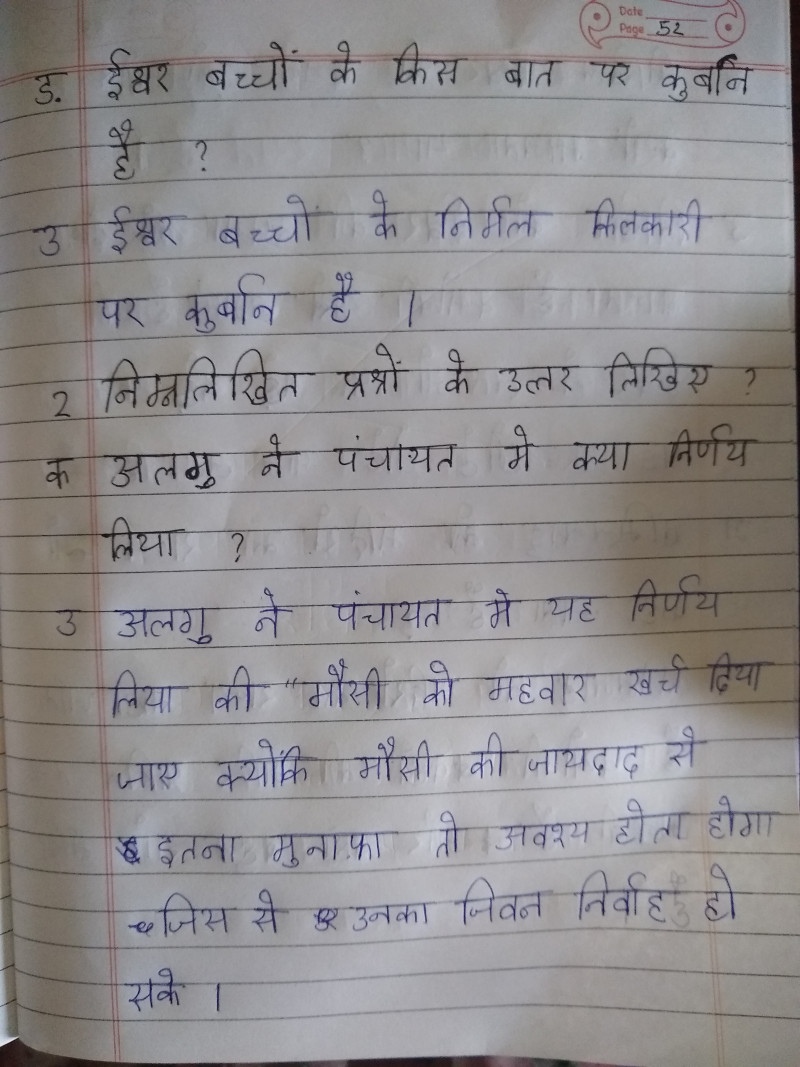 Date
Page 52
ड. ईश्वर बच्चों के किस बात पर कुर्बान
है ?
उ ईश्वर बच्चो के निर्मल किलकारी
पर कुर्बान है ।
2 निम्नलिखित प्रश्नों के उत्तर लिखिए ?
क अलगु ने पंचायत मे क्या निर्णय
लिया ?
उ अलगु ने पंचायत मे यह निर्णय
लिया की "मौसी को महवार खर्च दिया
जाए क्योंकि मौसी की जायदाद से
इतना मुनाफ़ा तो अवश्य होता होगा
जिस से उनका जिवन निर्वाह हो
सके ।